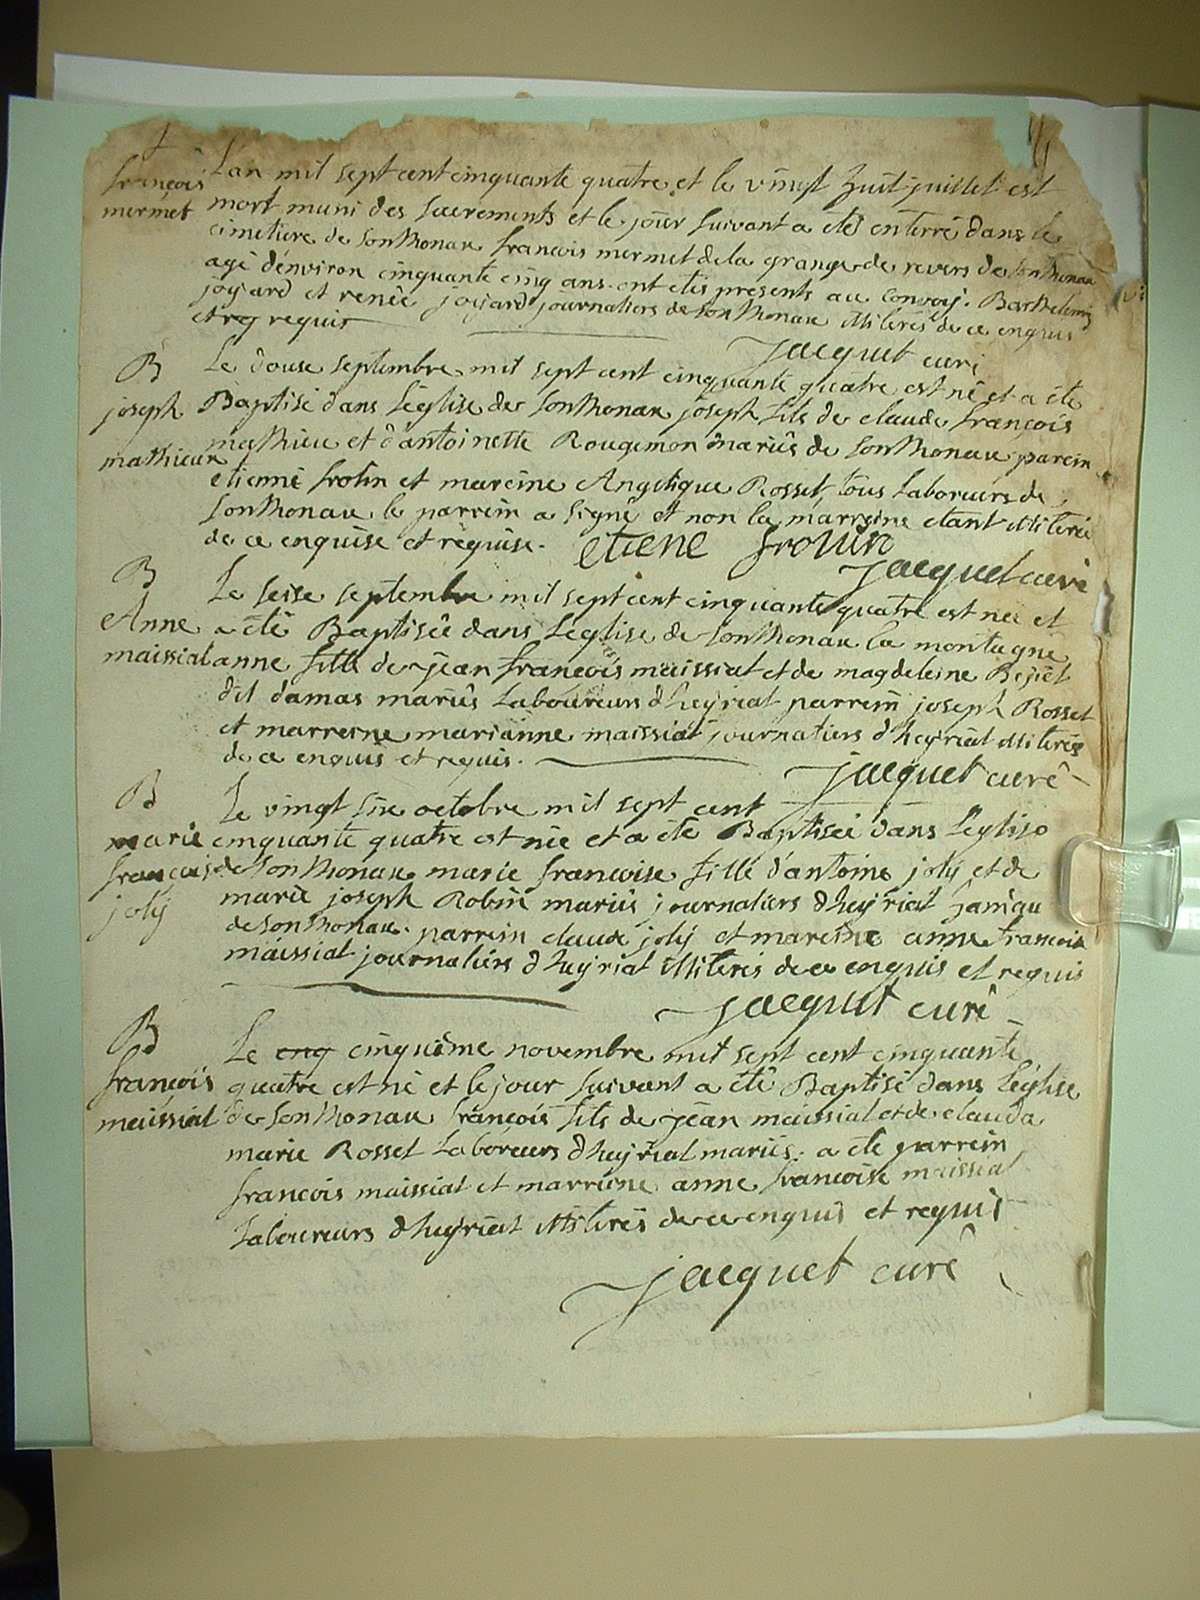 françois
mermet
L'an mil sept cent cinquante quatre et le vingt huit juillet est
mort muni des sacrements et le jour suivant a eté enterré dans le
cimetiere de sonthonax francois mermet de la grange de revers de sonthonax
agé d'environ cinquante cinq ans. ont etés presents au convoy. Barthelemy
joyard et renée joyard journaliers de sonthonax illiteres de ce enquis
et req requis
jacquet curé
B
joseph
mathieux
Le douse septembre mil sept cent cinquante quatre est né et a été
Baptisé dans l'église de sonthonax joseph fils de claude françois
mathieu et d'antoinette Rougemon mariés de sonthonax parein
etienne frolin et mareine Angelique Rosset, tous Laboreurs de
sonthonax le parrein a signé et non la marreine etant illiterée
de ce enquise et requise.
etiene frolin
jacquet curé
B
Anne
maissiat
Le seise septembre mil sept cent cinquante quatre est née et
a été Baptisée dans l'église de sonthonax la montagne
anne fille de jean françois maissiat et de magdeleine Bejiet
dit damas mariés Laboureurs d'heyriat parrein joseph Rosset
et marreine marianne maissiat journaliers d'heyriat illiterés
de ce enquis et requis.
jacquet curé
B
marie
françoise
joly
Le vingt six octobre mil sept cent
cinquante quatre est née et a été Baptisée dans l'église
de sonthonax marie francoise fille d'antoine joly et de
marie joseph Robin mariés journaliers d'heyriat hameau
de sonthonax. parrein claude joly et mareine anne francoise
maissiat journaliers d'heyriat illiterés de ce enquis et requis
jacquet curé
B
françois
maissiat
Le cinq cinquième novembre mil sept cent cinquante
quatre est né et le jour suivant a été Baptisé dans l'église
de sonthonax françois fils de jean maissiat et de clauda
marie Rosset Laboreurs d'heyriat mariés. a été parrein
francois maissiat et marreine anne francoise maissiat
Laboureurs d'heyriat illiterés de ce enquis et requis
jacquet curé